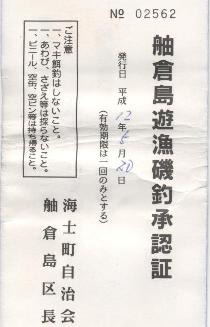 № 02562
舳倉島遊漁磯釣承認証
発行日 平成12年5月20日
(有効期限は一回のみとする)
海士町自治会
舳倉島区長
ご注意
一、マキ餌釣はしないこと。
一、あわび、さざえ等は採らないこと。
一、ビニール、空缶、空ビン等は持ち帰ること。